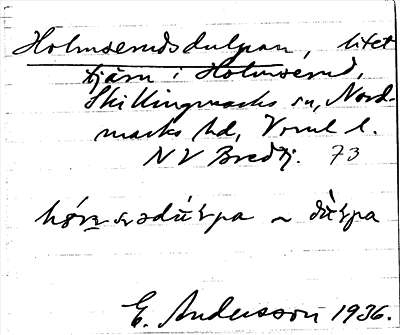 Holmserudsdulpan, litet
tjärn i Holmserud,
Skillingmarks sn, Nord-
marks hd, Vrml l.
NV Bredtj. 73
~
E. Andersson 1936.